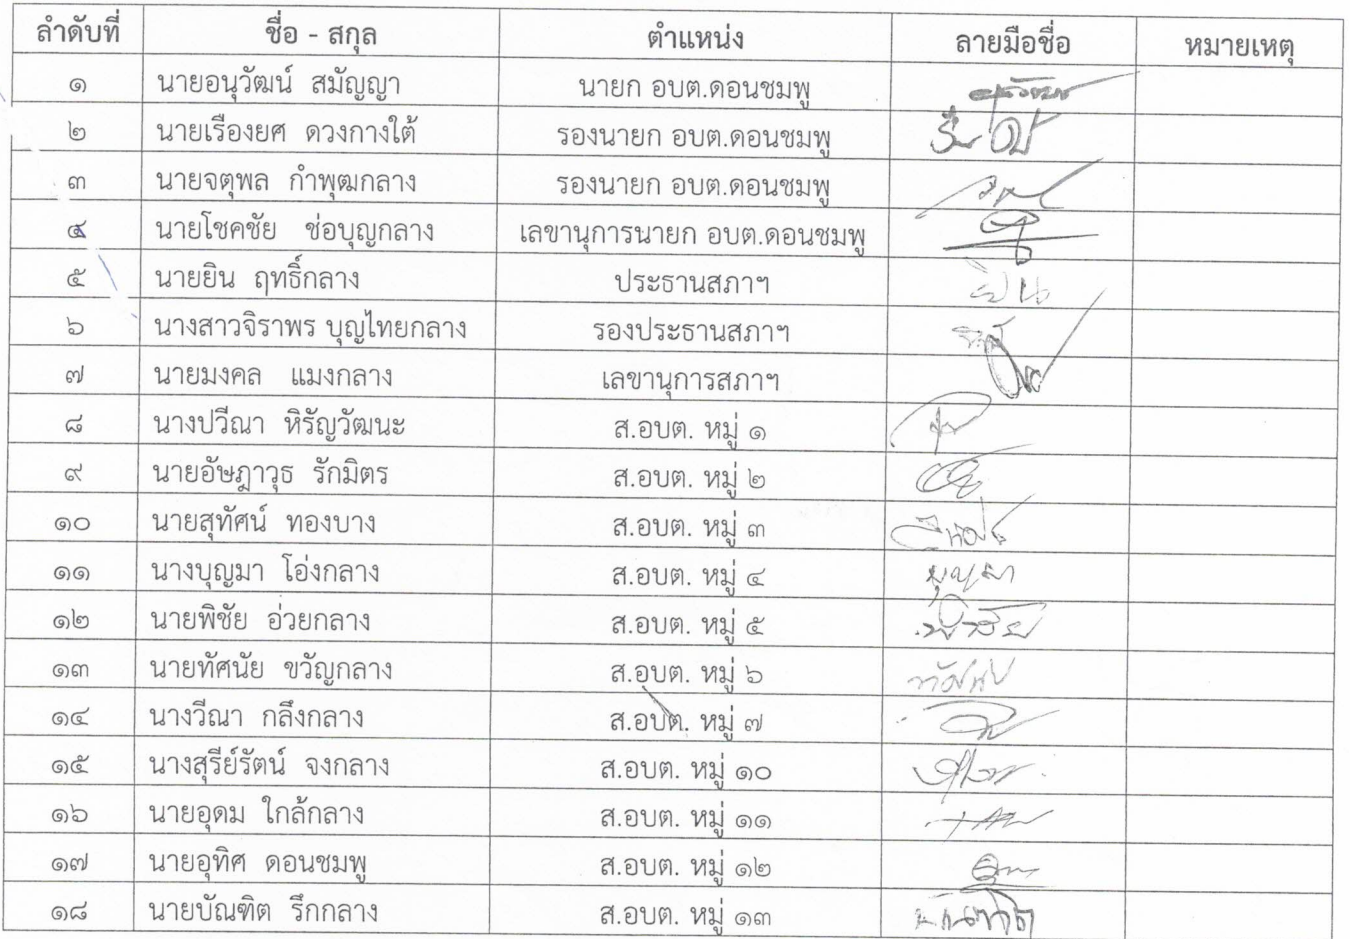 ลำดับที่ ชื่อ - สกุล ตำแหน่ง ลายมือชื่อ หมายเหตุ
๑ นายอนุวัฒน์ สมัญญา นายก อบต.ดอนชมพู
๒ นายเรืองยศ ดวงกางใต้ รองนายก อบต.ดอนชมพู
๓ นายจตุพล กำพุฒกลาง รองนายก อบต.ดอนชมพู
๔ นายโชคชัย ช่อบุญกลาง เลขานุการนายก อบต.ดอนชมพู
๕ นายยิน ฤทธิ์กลาง ประธานสภาฯ ยิน
๖ นางสาวจิราพร บุญไทยกลาง รองประธานสภาฯ
๗ นายมงคล แมงกลาง เลขานุการสภาฯ
๘ นางปวีณา หิรัญวัฒนะ ส.อบต. หมู่ ๑
๙ นายอัษฎาวุธ รักมิตร ส.อบต. หมู่ ๒
๑๐ นายสุทัศน์ ทองบาง ส.อบต. หมู่ ๓
๑๑ นางบุญมา โอ่งกลาง ส.อบต. หมู่ ๔ บุญมา
๑๒ นายพิชัย อ่วยกลาง ส.อบต. หมู่ ๕ พิชัย
๑๓ นายทัศนัย ขวัญกลาง ส.อบต. หมู่ ๖ ทัศนัย
๑๔ นางวีณา กลึงกลาง ส.อบต. หมู่ ๗
๑๕ นางสุรีย์รัตน์ จงกลาง ส.อบต. หมู่ ๑๐
๑๖ นายอุดม ใกล้กลาง ส.อบต. หมู่ ๑๑
๑๗ นายอุทิศ ดอนชมพู ส.อบต. หมู่ ๑๒
๑๘ นายบัณฑิต รึกกลาง ส.อบต. หมู่ ๑๓ บัณฑิต